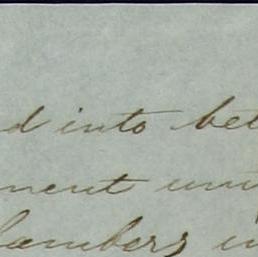 d into bet
ment un
lambers in